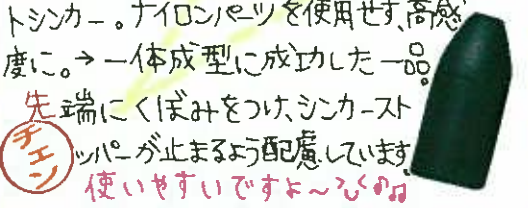 トシンカー。ナイロンパーツを使用せず、高感
度に。→一体成型に成功した一品。
先端にくぼみをつけ、シンカースト
ッパーが止まるよう配慮しています
チェン
使いやすいですよ～